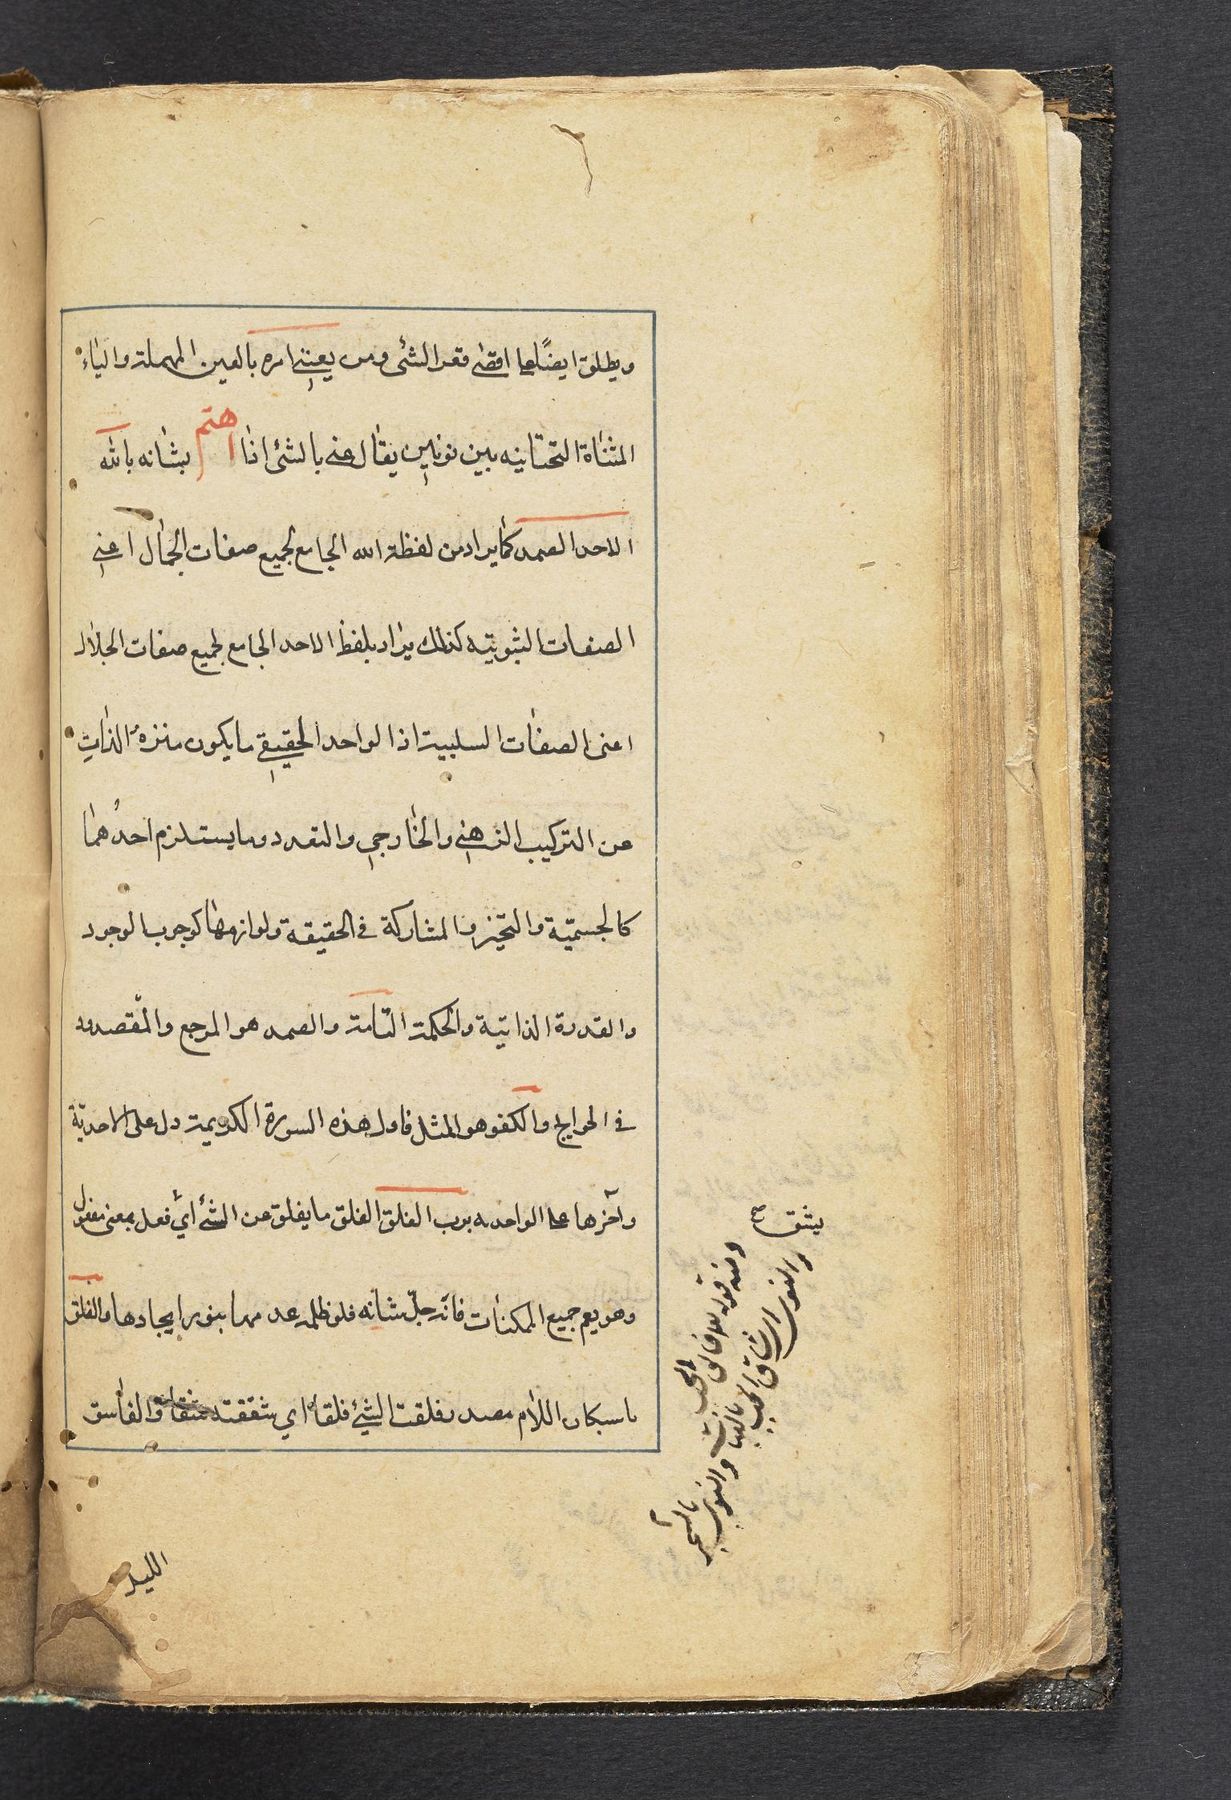 ويطلق ايضًا على اقصى قعر الشئ ومن يعنيني امره بالعين المهملة والياء
المثناة التحتانيه بين نونين يقال عنى بالشئ اذا اهتم بشانه بالله
الاحد الصمد كما يراد من لفظة الله الجامع لجميع صفات الجمال اعنى
الصفات الثبوتيه كذلك يراد بلفظ الاحد الجامع لجميع صفات الجلال
اعنى الصفات السلبية اذ الواحد الحقيقي ما يكون منزه الذات
عن التركيب الذهنى والخارجي والتعدد وما يستلزم احدهما
كالجسميّة والتحيّز والمشاركة في الحقيقة ولوازمها كوجوب الوجود
والقدرة الذاتية والحكمة التامة والصمد هو المرجع والمقصود
في الحوايج والكفو هو المثل فاول هذه السورة الكريمة دل على الاحديّة
وآخرها على الواحديه برب الفلق الفلق ما يفلق عن الشئ اي فعل بمعنى مفعول
وهو يعم جميع الممكنات فانه جلّ شانه فلق ظلمة عدمها بنور ايجادها والفلق
باسكان اللام مصدر فلقت الشئ فلقا اي شققته شقا والغاسق
الليل
يشق
ومنه قوله تعالى فالق الحب
والنوى اي شاق الحب
بالنبات والنوى
بالشجر